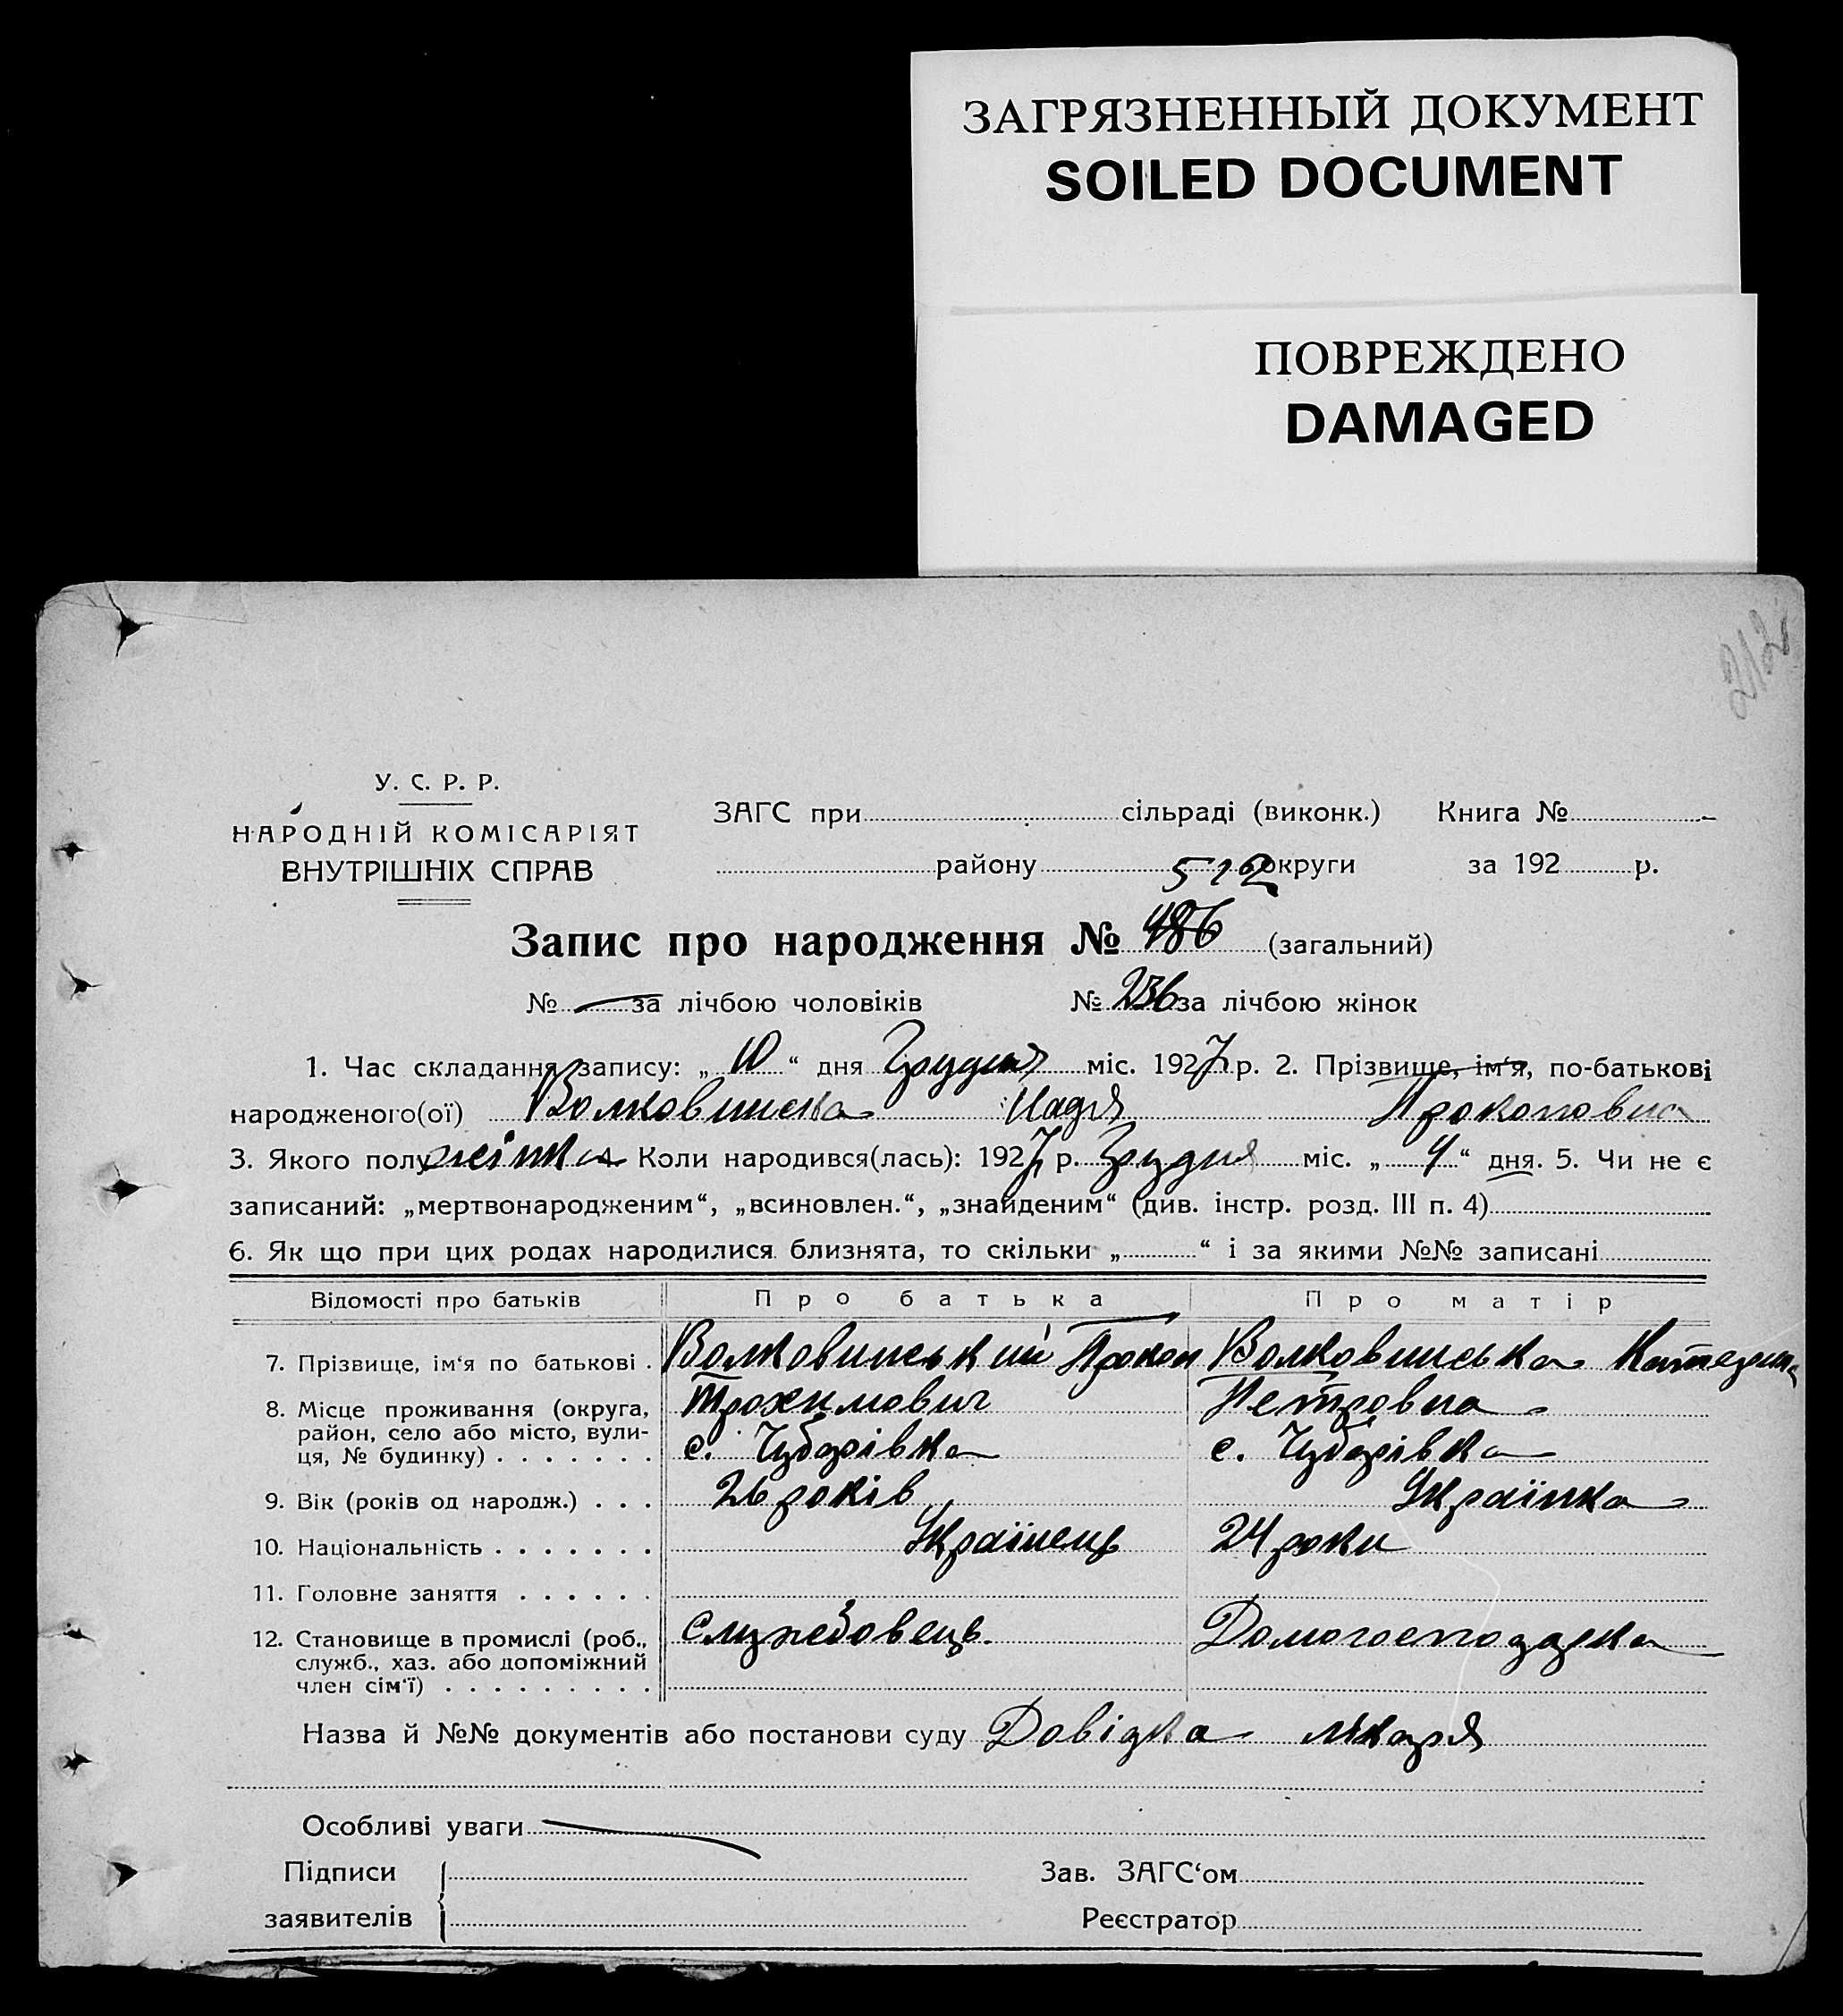 ЗАГРЯЗНЕННЫЙ ДОКУМЕНТ
SOILED DOCUMENT
ПОВРЕЖДЕНО
DAMAGED
У. С. Р. Р.
НАРОДНІЙ КОМІСАРІЯТ
ВНУТРІШНІХ СПРАВ
ЗАГС при сільраді (виконк.) Книга №
району округи за 192 р.
512
Запис про народження № 486 (загальний)
№ — за лічбою чоловіків № 236 за лічбою жінок
1. Час складання запису: „ 10 “ дня Грудня міс. 1927 р. 2. Прізвище, ім‘я, по-батькові
народженого(ої) Волковинська Надія Прокоповна
3. Якого полу жінка 4. Коли народився(лась): 1927 р. Грудня міс. „ 4 “ дня. 5. Чи не є
записаний: „мертвонародженим“, „всиновлен.“, „знайденим“ (див. інстр. розд. III п. 4)
6. Як що при цих родах народилися близнята, то скільки „ “ і за якими №№ записані
Відомості про батьків Про батька Про матір
7. Прізвище, ім‘я по батькові . Волковинський Прокоп Волковинська Катерина
8. Місце проживання (округа, Трохимович Петровна
район, село або місто, вули-
ця, № будинку) . . . . . . . с. Чубарівка с. Чубарівка
9. Вік (років од народж.) . . . 26 років Українка
10. Національність . . . . . . . Українець 24 роки
11. Головне заняття . . . . . .
12. Становище в промислі (роб., Службовець. Домогосподарка
служб., хаз. або допоміжний
член сім‘ї) . . . . . . . . .
Назва й №№ документів або постанови суду Довідка лікаря
Особливі уваги
Підписи Зав. ЗАГС‘ом
заявителів Реєстратор